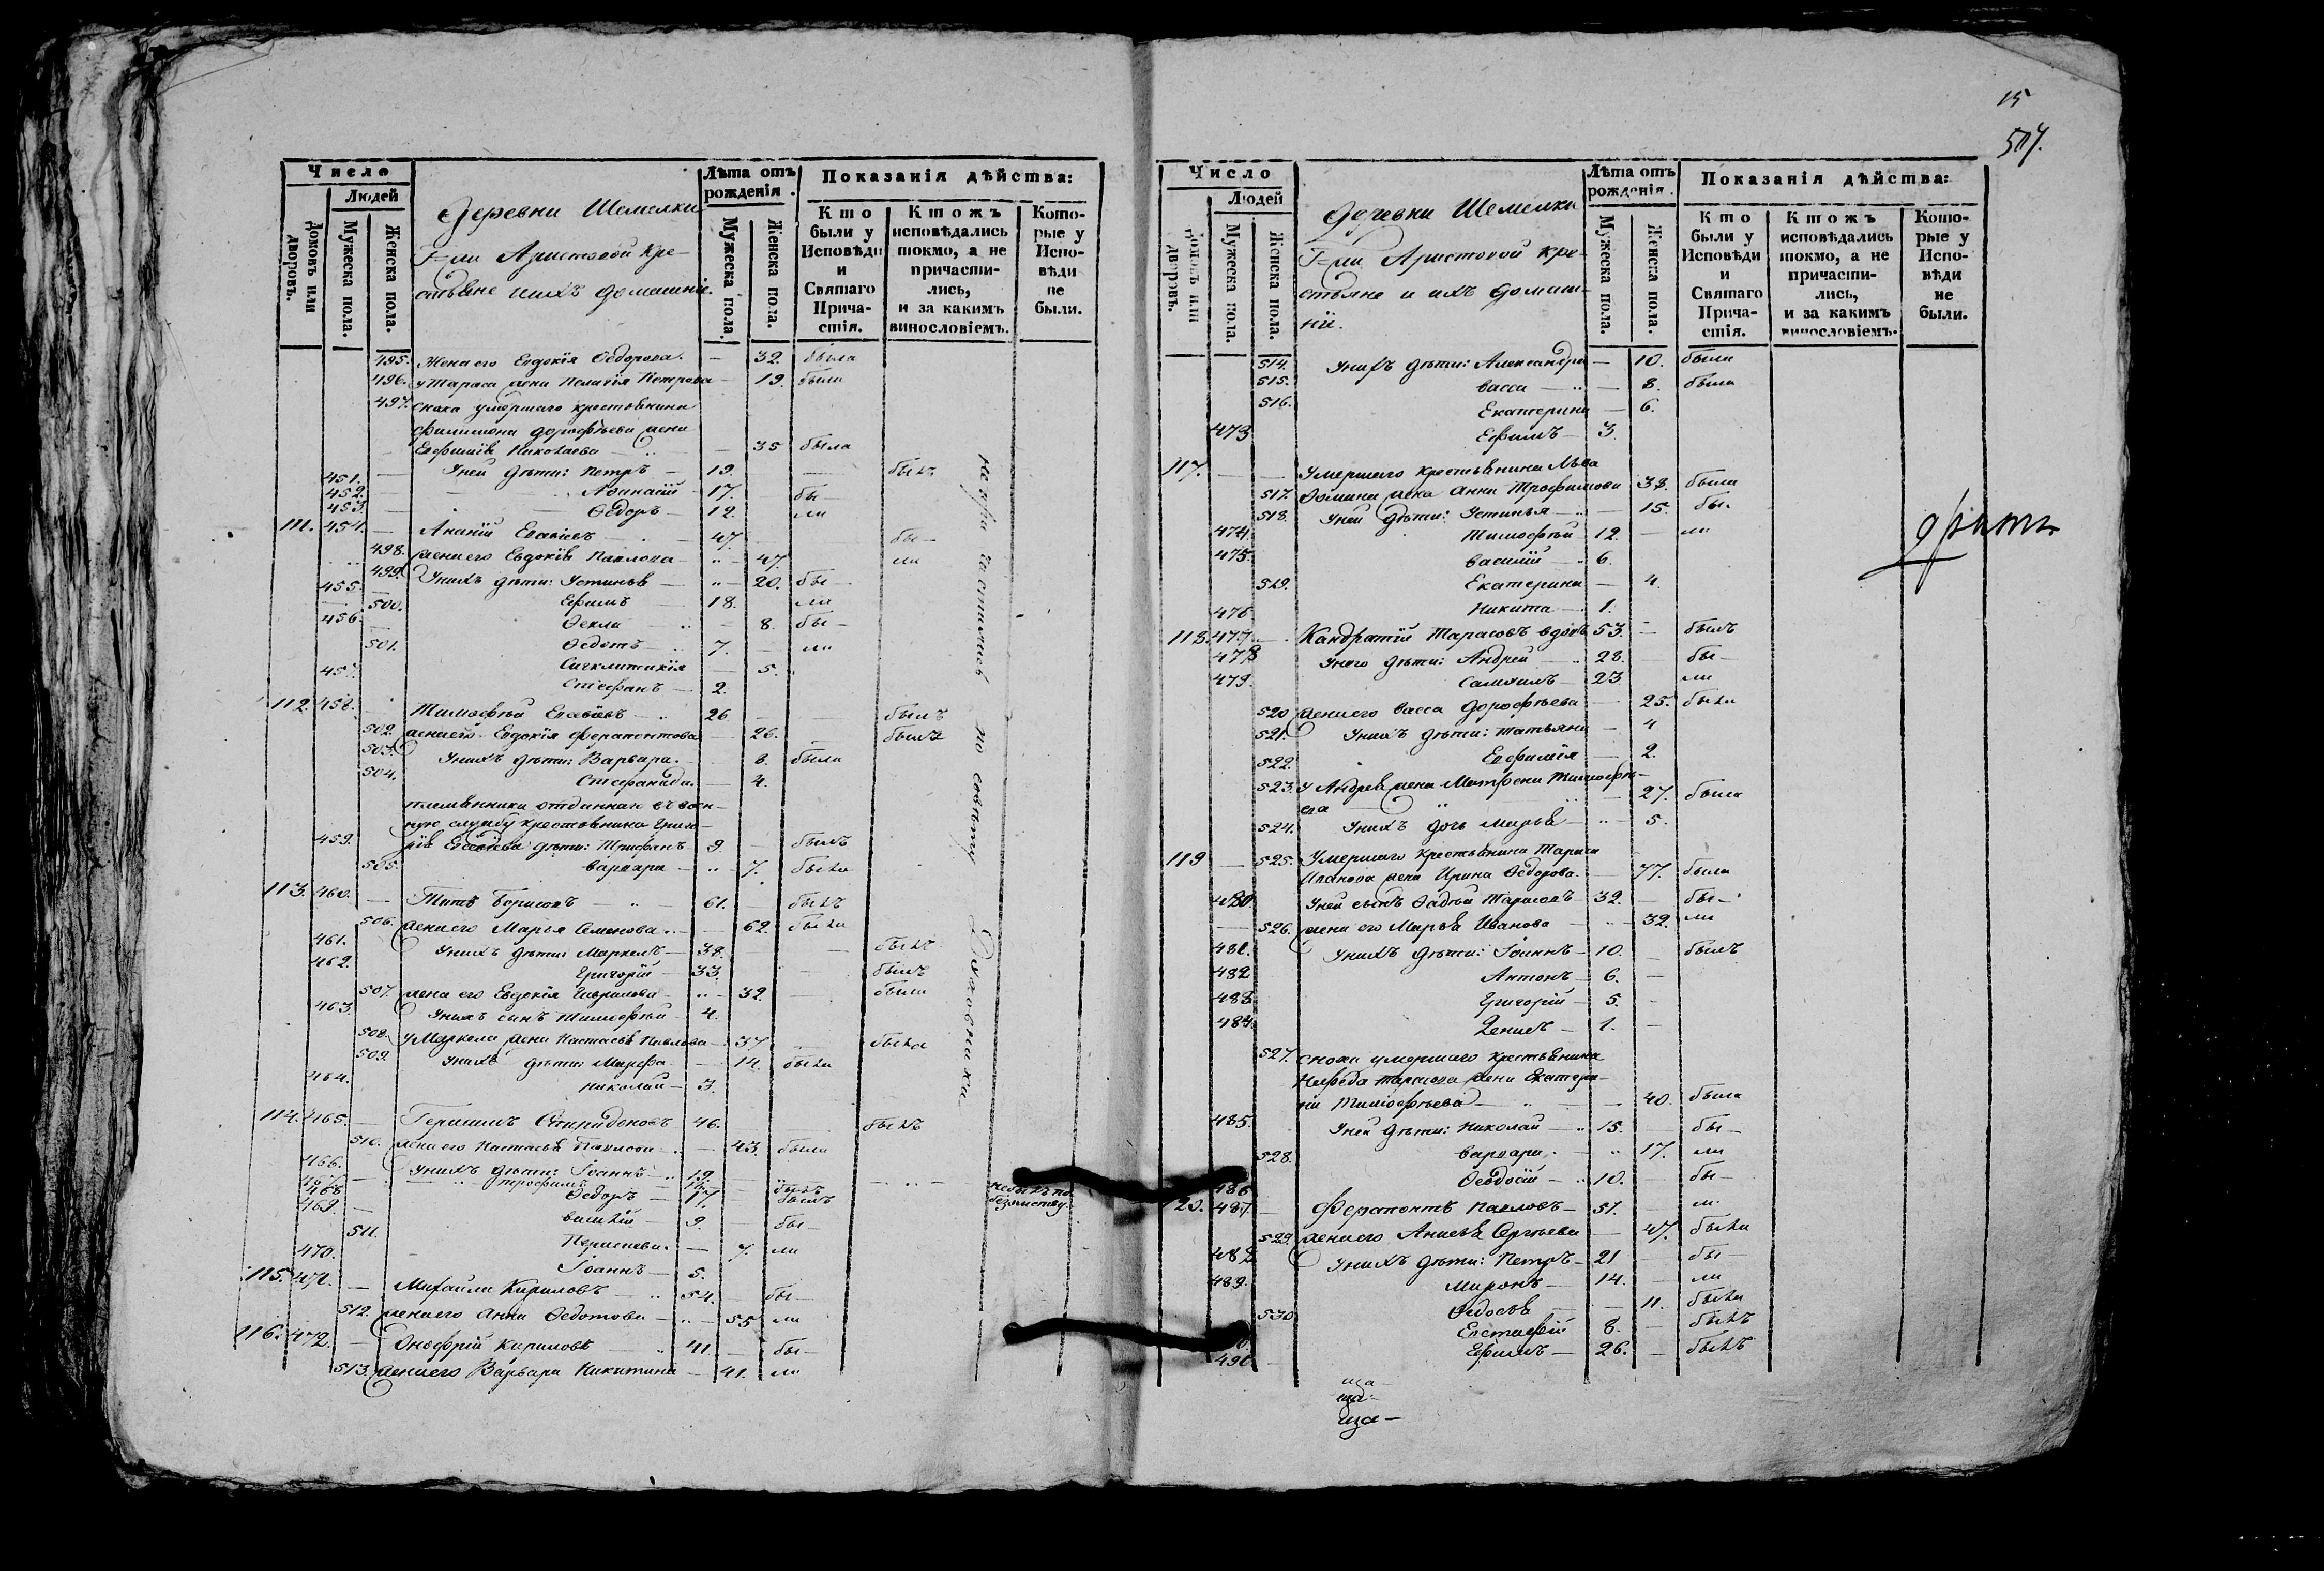 15
507.
Число
Людей
Домовъ или дворовъ.
Мужеска пола.
Женска пола.
Деревни Шемелки
Г-жи Аристовой кре-
стьяне и ихъ домашніе.
Лѣта отъ рожденія.
Мужеска пола.
Женска пола.
Показанія дѣйства:
Кто были у Исповѣди и Святаго Прича-стія.
Ктожъ исповѣдались токмо, а не причасти-лись, и за какимъ винословіемъ.
Кото-рые у Испо-вѣди не были.
495. Жена его Евдокія Ѳедорова. — 32. была
496. у Тараса жена Пелагія Петрова — 19. была
497. Сноха умершаго крестьянина
Филимона Дорофѣева жена
Евфимія Николаева — 35 была
451. У ней дѣти: Петръ — 19. былъ
452. Аѳанасій — 17. бы-
453. Ѳедоръ — 12. ли
111. 454. Ананій — 47. бы-
498. жена его Евдокія Павлова — 47. ли
499. У нихъ дѣти: Устинья — 20. бы-
455. Ефимъ — 18. ли
500. Ѳекла — 8. бы-
456. Ѳедотъ — 7. ли
501. Синклитикія — 5.
457. Стефанъ — 2.
112. 458. Тимофѣй — 26 былъ
502. жена его Евдокія Ферапонтова 26. была
503. У нихъ дѣти: Варвара. 8. была
504. Стефанида. 4.
племянника отданнаго въ воен-
ную службу крестьянина Григо-
459. рія дѣти: Трифанъ 9. былъ
505. Варвара — 7. была
113. 460. Титъ Борисовъ — 61. былъ
506. жена его Марья Семенова. — 62. была
461. У нихъ дѣти: Маркелъ — 38. былъ
462. Григорій — 33. былъ
507. жена его Евдокія Гаврилова — 32. была
463. У нихъ сынъ Тимофѣй 4.
508. у Маркела жена Настасья Павлова — 37 была
509. У нихъ дѣти: Марфа — 14. была
464. Николай — 3.
114. 465. Герасимъ Спиридоновъ 46. былъ
510. жена его Настасья Павлова — 43. была
466. У нихъ дѣти: Іоаннъ — 19.
467. Трофимъ былъ
468. Ѳедоръ — 17. былъ
469. Василій — 9. бы-
511. Парасковья. — 7. ли
470. Іоаннъ — 5.
115. 471. Михайла Кириловъ 54. бы-
512. жена его Анна Ѳедотова — 55 ли
116. 472. Онофрій Кириловъ 41 бы-
513. жена его Варвара Никитина — 41. ли
по совѣту Духовника
не былъ по
Число
Людей
Домовъ или дворовъ.
Мужеска пола.
Женска пола.
Деревни Шемелки
Г-жи Аристовой кре-
стьяне и ихъ домаш-
ніи.
Лѣта отъ рожденія.
Мужеска пола.
Женска пола.
Показанія дѣйства:
Кто были у Исповѣди и Святаго Прича-стія.
Ктожъ исповѣдались токмо, а не причасти-лись, и за какимъ винословіемъ.
Кото-рые у Испо-вѣди не были.
514. У нихъ дѣти: Александра — 10. была
515. Васса — 8. была
516. Екатерина — 6.
473 Ефимъ — 3.
117. Умершаго крестьянина Льва
517. Ѳомина жена Анна Трофимова 38. была
518. У ней дѣти: Устинья — 15. бы-
474. Тимофѣй 12. ли
475. Василій — 6.
519. Екатерина — 4.
476 Никита — 1.
118. 477. Кандратій Тарасовъ вдовъ 53. былъ
478 У него дѣти: Андрей 28. бы-
479. Самоилъ — 23 ли
520 жена его Васса Дорофѣева 25. была
521. У нихъ дѣти: Татьяна — 4
522. Евфимія — 2.
523. у Андрея жена Матрона Тимофѣ-
ева 27. была
524. У нихъ дочь Марья — 5.
119 525. Умершаго крестьянина Тараса
Иванова жена Ирина Ѳедорова. 77. была
480. У ней сынъ Ѳадѣй Тарасовъ 32. бы-
526. жена его Марья Иванова 32. ли
481. У нихъ дѣти: Іоаннъ — 10. былъ
482 Антонъ — 6.
483. Григорій — 5.
484. Денисъ — 1.
527. сноха умершаго крестьянина
Тарасова жена Екатери-
на Тимофѣева — 40. была
485. У ней дѣти: Николай — 15. бы-
528. Варвара. 17. ли
486 Ѳеодосій — 10. бы-
120. 487. Ферапонтъ Павловъ — 51. ли
529. жена его Анисья Сергѣева — 47. была
488 У нихъ дѣти: Петръ — 21 бы-
489. Миронъ — 14. ли
530 Ѳедосья — 11. была
Евстафій 8. былъ
490. Ефимъ — 26. былъ
ща-
ща-
ща-